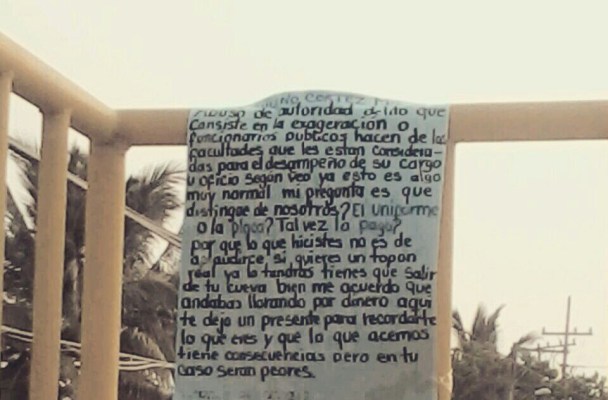 CORTEZ
Abuso de autoridad delito que
Consiste en la exageración o
funcionarios publicos hacen de las
facultades que les estan considera-
das para el desampeño de su cargo
u oficio según veo ya esto es algo
muy normal mi pregunta es que
distingue de nosotros? El uniforme
o la placa? Tal vez la paga?
por que lo que hicistes no es de
aplaudirce si quieres un topon
real ya lo tendras tienes que salir
de tu cueva bien me acuerdo que
andabas llorando por dinero aqui
te dejo un presente para recordarte
lo que eres y que lo que acemos
tiene consecuencias pero en tu
caso seran peores.